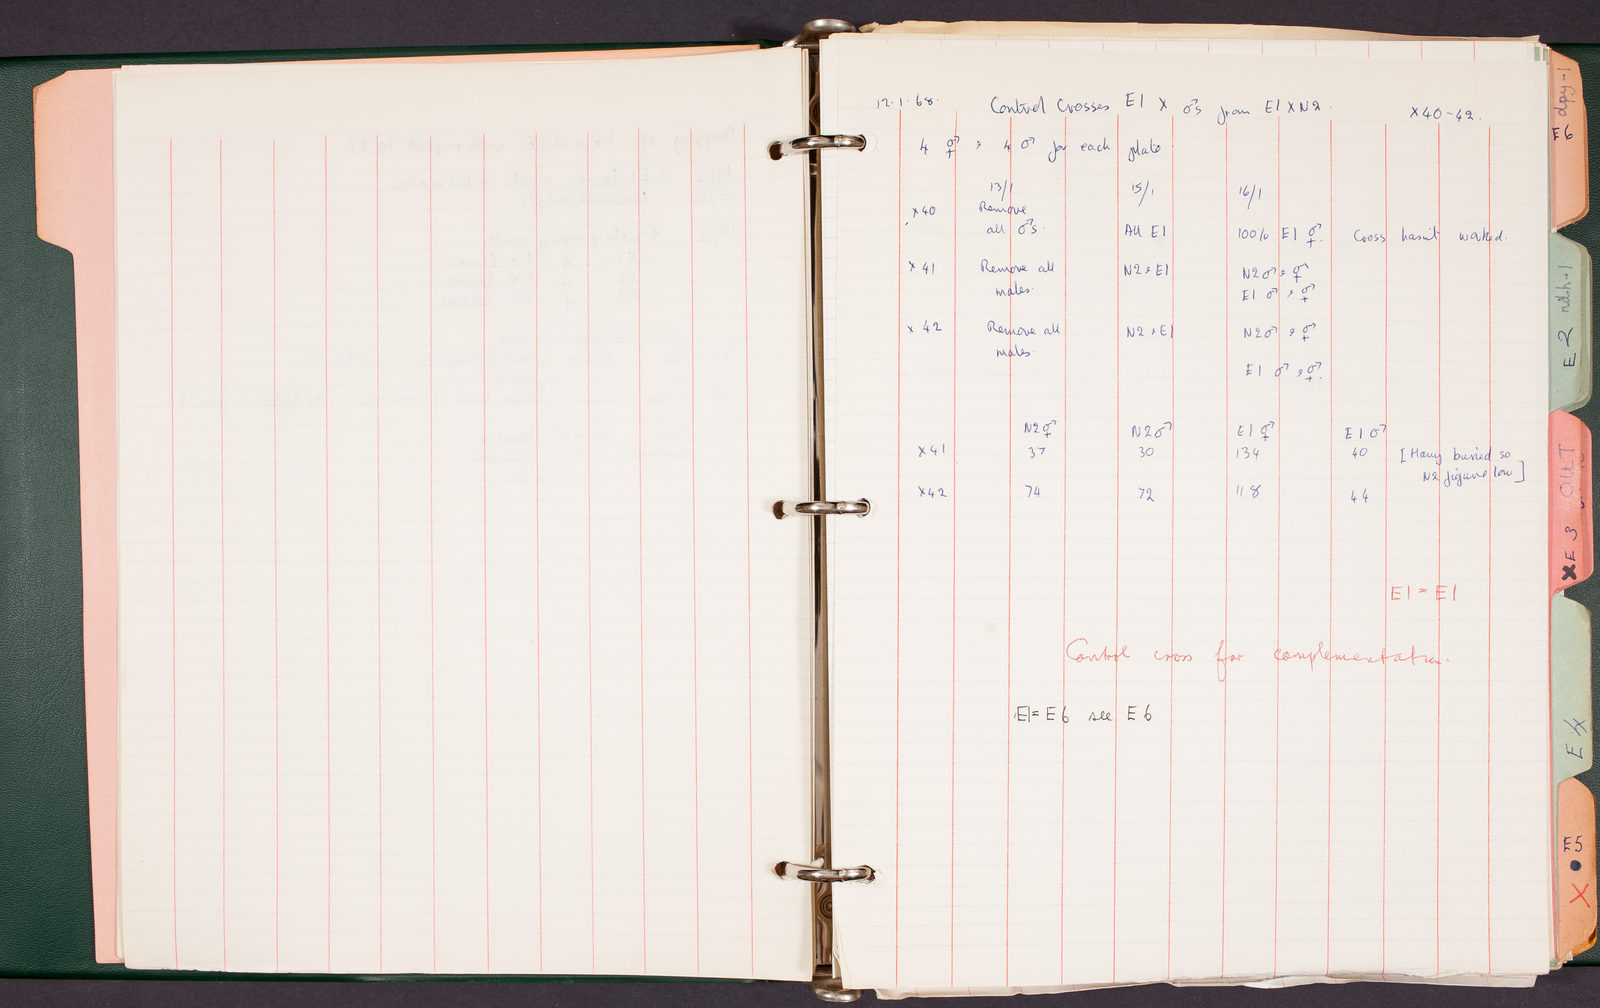 12.1.68. Control Crosses E1 x ♂s from E1 x N2. X40-42.
4 ⚥ & 4 ♂ for each plate
13/1 15/1 16/1
X40 Remove all ♂s. All E1 100% E1 ⚥. Cross hasn't worked.
X41 Remove all males. N2 & E1 N2 ♂ & ⚥
E1 ♂ & ⚥
X42 Remove all males. N2 & E1 N2 ♂ & ⚥
E1 ♂ & ⚥.
N2 ⚥ N2 ♂ E1 ⚥ E1 ♂
X41 37 30 134 40 [Many buried so
N2 figure low]
X42 74 72 118 44
E1 = E1
Control cross for complementation.
E1 = E6 see E6
dpy-1
E6
E2 rdh-1
XE3 OUT
E4
E5
X